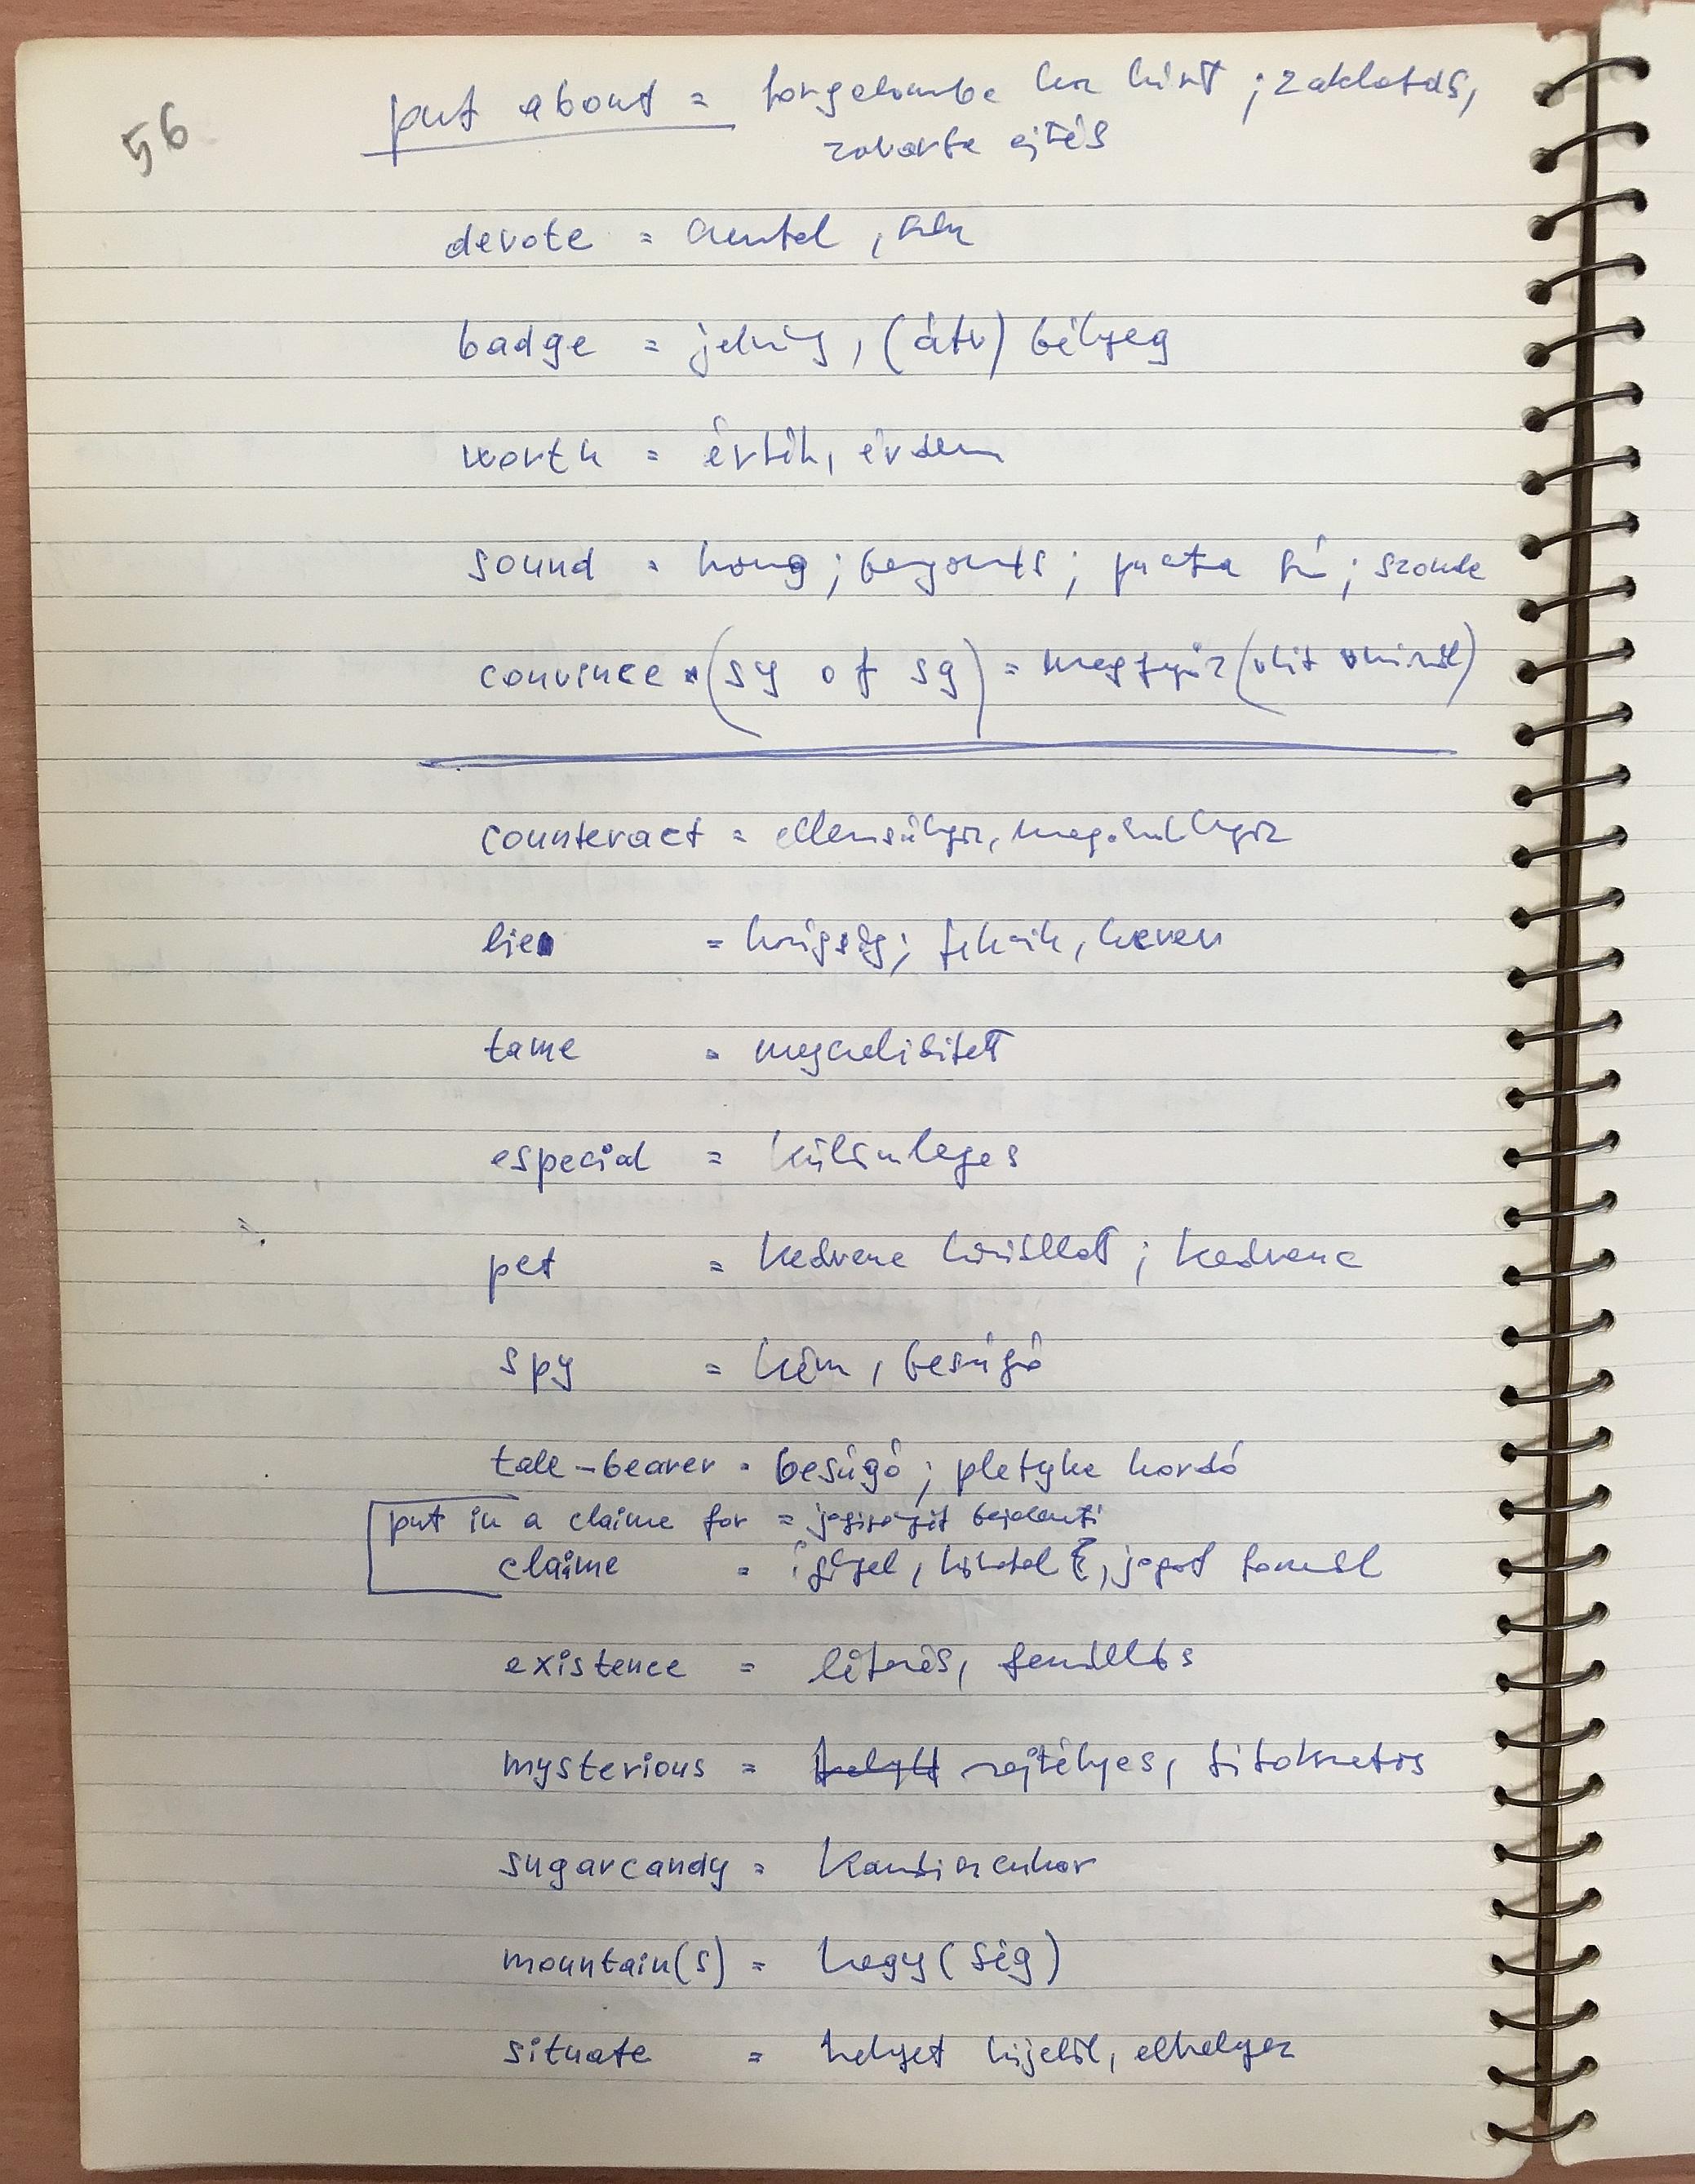 56
put about = forgalomba hoz hírt ; zaklatás,
zavarba ejtés
devote = szentel , szán
badge = jelvény , (átv) bélyeg
worth = érték, érdem
sound = hang ; tengerszoros ; puszta szó ; szonda
convince (sy of sg) = meggyőz (vkit vmiről)
counteract = ellensúlyoz, megakadályoz
lie = hazugság ; fekszik, hever
tame = megszelidített
especial = különleges
pet = kedvenc háziállat ; kedvenc
spy = kém , besúgó
tale-bearer = besúgó ; pletyka hordó
put in a claime for = jogigényét bejelenti
claime = igényel , követel , jogot formál
existence = létezés, fennállás
mysterious = rejtélyes, titokzatos
sugarcandy = kandiscukor
mountain(s) = hegy(ség)
situate = helyet kijelöl, elhelyez